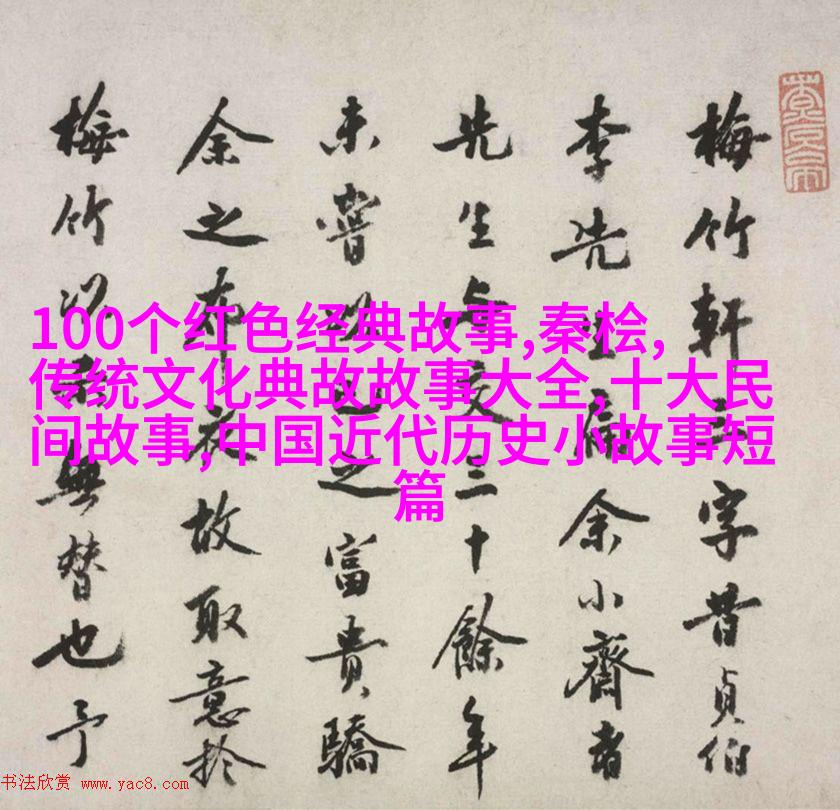 100个红色经典故事,秦桧,
传统文化典故故事大全,十大民
间故事,中国近代历史小故事短
篇
梅竹軒三字昔貞伯
李先生余小齋者
先生与交三十餘年
未嘗以己之富貴驕
余之布衣故取意於
梅竹以無替也予
书法欣赏 www.yac8.com